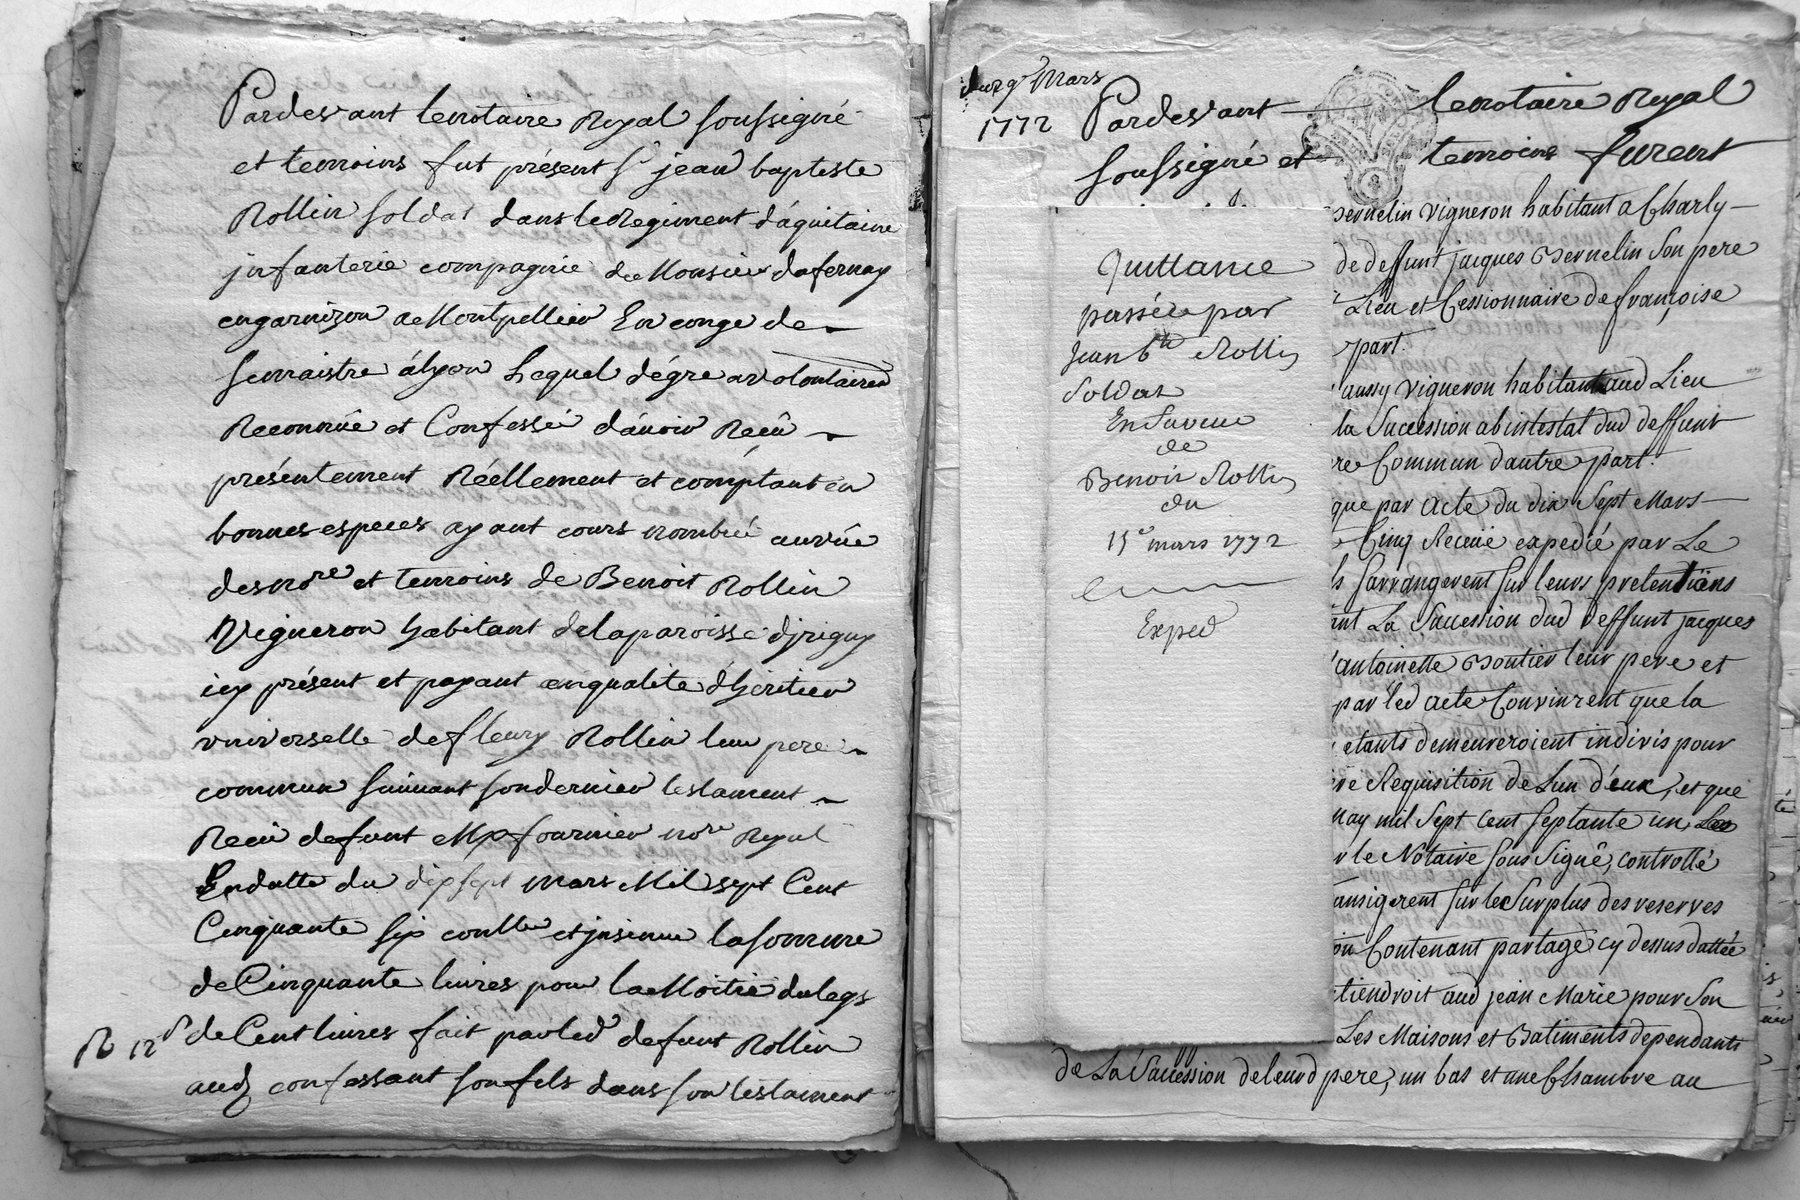 Pardevant lenotaire Royal soussigné
et temoins fut présent Sr jean baptiste
Rollin soldat dans le Regiment d'aquitaine
jnfanterie compagnie de Monsieur dafernay
engarnizon a Montpellier En conge de
semaistre a lyon Lequel dégré avolontaire
Reconnû et Confessé dávoir Recû
présentement Réellement et comptant en
bonnes especes ayant cours nombré auvûe
desnore et temoins de Benoit Rollin
Vigneron habitant delaparoisse djrigny
icy présent et payant enqualité d'héritier
vniverselle defleury Rollin leur pere
commun suivant sondernier testament
Recu defunt Me fournier nore Royal
Endatte du dix sept mars Mil sept Cent
Cinquante six conlle et jnsinue lasomme
deCinquante livres pour la Moitié dulegs
R 12s
deCent livres fait parled defunt Rollin
aud confessant sonfils dans son testament
du 29 Mars
1772
Pardevant lenotaire Royal
soussigné et temoins furent
Bernelin vigneron habitant a Charly
de deffunt jacques Bernelin Son pere
Lieu et Cessionnaire de françoise
part.
aussy vigneron habitant aud Lieu
la Succession abintestat dud deffunt
re Commun dautre part.
que par acte du dix Sept Mars
Cinq Receüe expedié par Le
s sarrangerent sur leurs pretentions
nt La Succession dud deffunt jacques
antoinette Boutier leur pere et
par led acte Convinrent que la
etants demeureroient indivis pour
re Requisition de Lun d'eux, et que
may mil Sept Cent Septante un,
r le Notaire Sous Signé, controllé
ansigerent sur le Surplus des reserves
on Contenant partage cy dessus dattée
tiendroit aud jean Marie pour Son
Les Maisons et Batiments dependants
de La Succession de leurd pere, un bas et une Chambre au
Quittance
passée par
Jean bte Rollin
Soldat
En faveur
de
Benoit Rollin
du
15e mars 1772
Exped